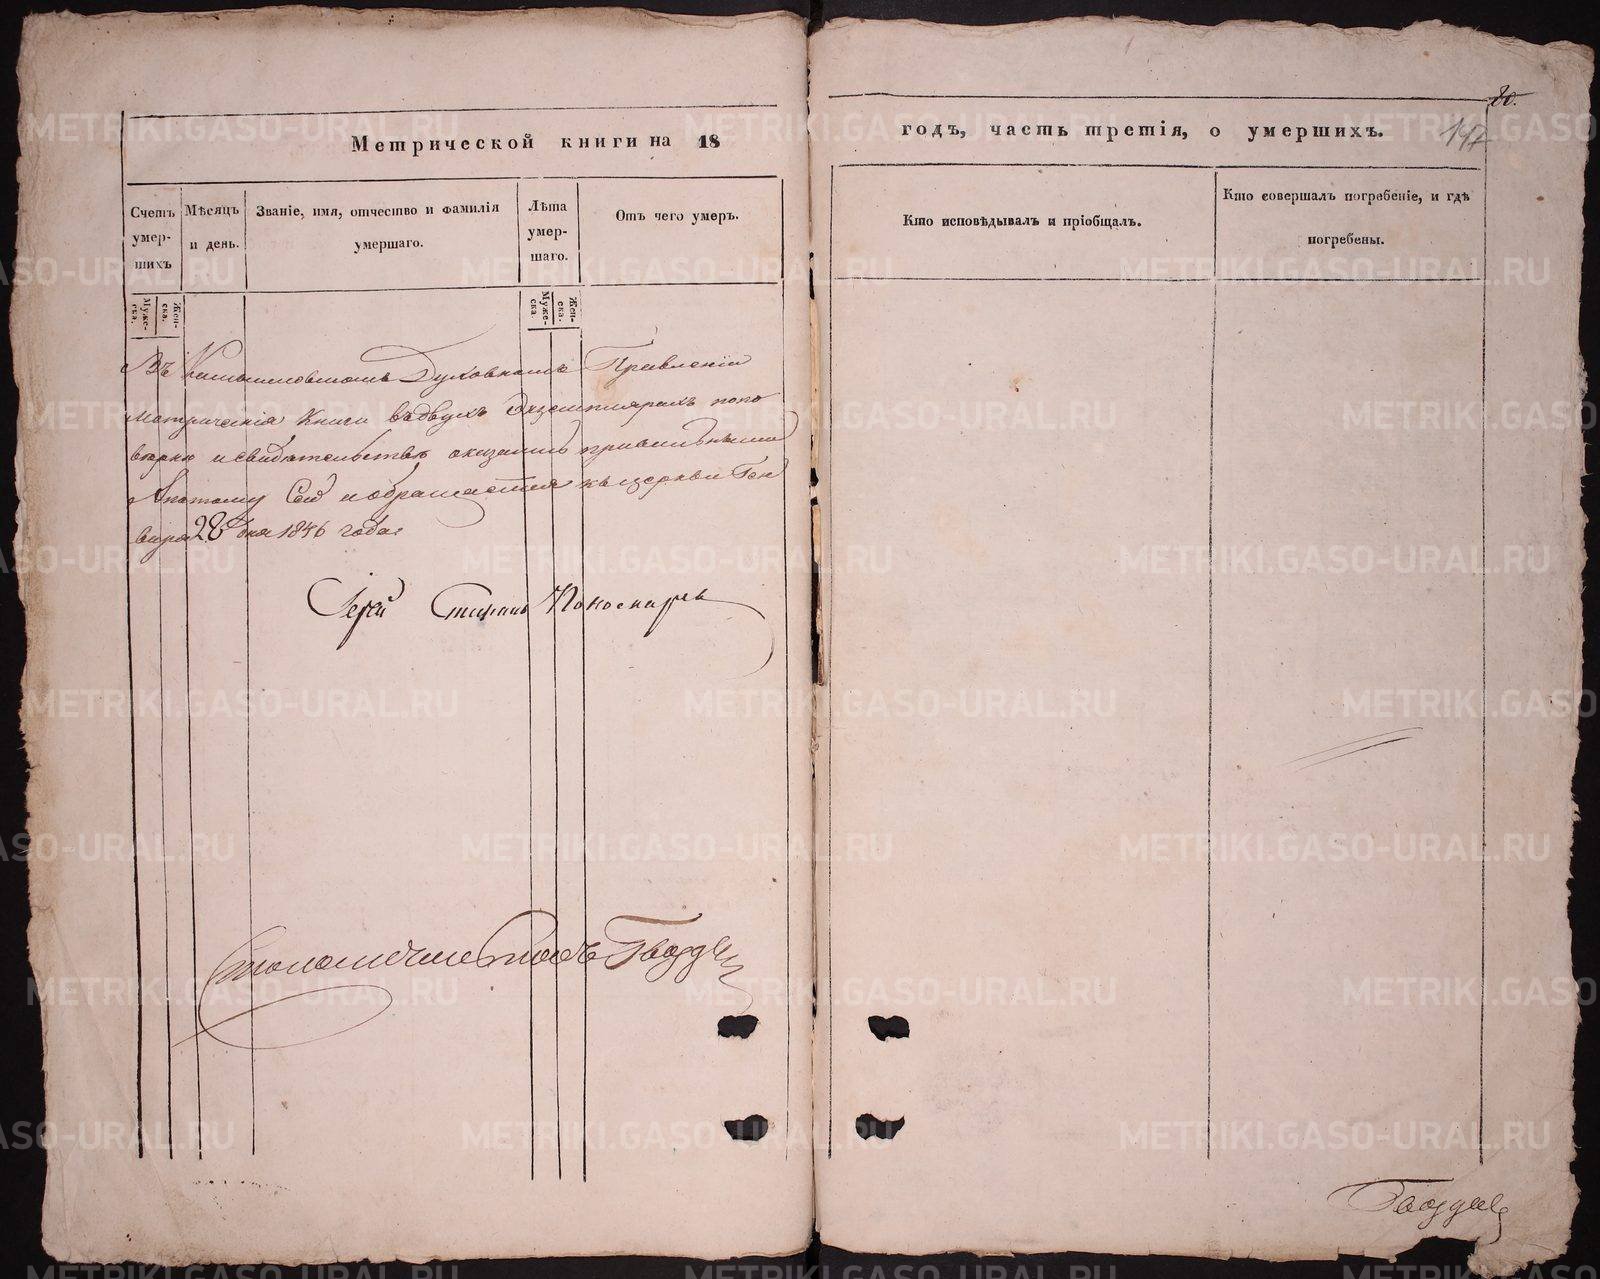 80.
147
Метрической книги на 18
годъ, часть третія, о умершихъ.
Счетъ умер-
шихъ
Мѣсяцъ
и день.
Званіе, имя, отчество и фамилія
умершаго.
Лѣта
умер-
шаго.
Отъ чего умеръ.
Кто исповѣдывалъ и пріобщалъ.
Кто совершалъ погребеніе, и гдѣ
погребены.
Муже-
ска.
Жен-
ска.
Муже-
ска.
Жен-
ска.
Въ Камышловскомъ Духовномъ Правленіи
метрическія Книги въ двухъ экземплярахъ по по
вѣрке и свидѣтельствѣ оказались правильными
А потому Сей и обращается къ церкви Ген
варя 28 дня 1846 года.
Іерей Стефанъ Пономаревъ
Столоначальникъ Гвоздевъ
Гвоздевъ
METRIKI.GASO-URAL.RU